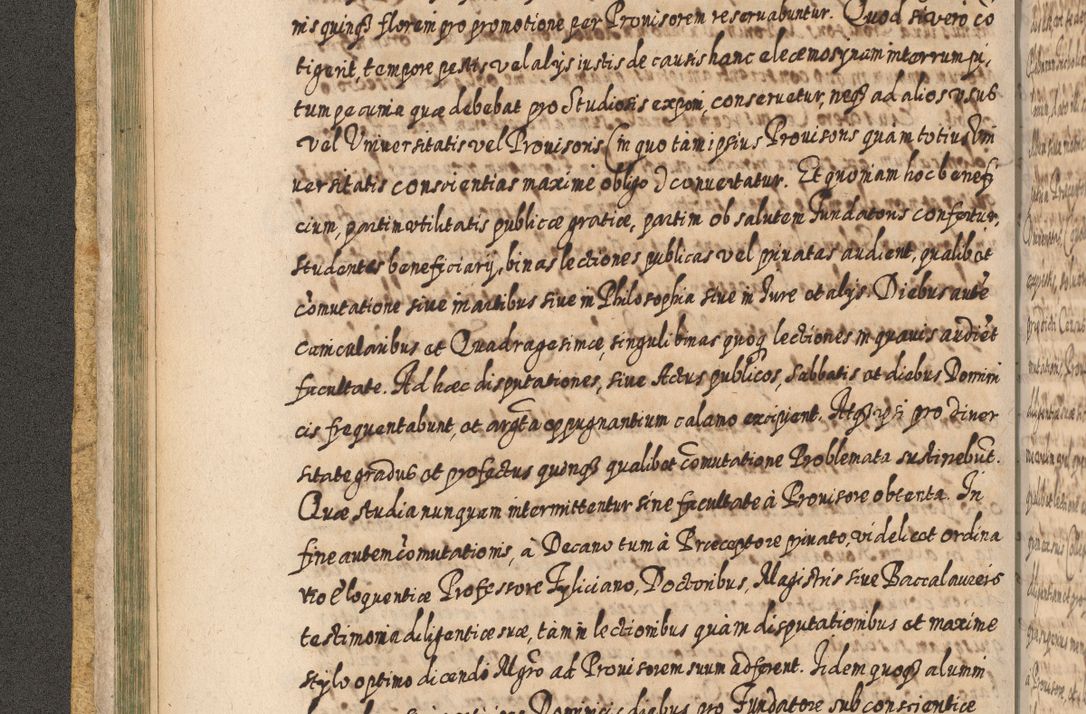 nis quinq3 florem pro promotione per Prouisorem reseruabuntur. Quod si vero cō
tigerit, tempore pestis vel alijs iustis de causis hanc eleemosynam interrumpi,
tum pecunia quæ debebat pro Studiosis exponi, conseruetur, neq3 ad alios vsus
vel Vniuersitatis vel Prouisoris (in quo tam ipsius Prouisoris quam totius Vni
uersitatis conscientias maxime obligo) conuertatur. Et quoniam hoc benefi
cium, partim vtilitatis publicæ gratiæ, partim ob salutem Fundatoris confertur,
studentes beneficiarij, binas lectiones publicas vel priuatas audient, qualibet
cōmutatione siue in artibus siue in Philosophia siue in Jure et alijs. Diebus autē
canicularibus et Quadragesimæ, singuli binas quoq lectiones in quauis audiēt
facultate. Ad hæc disputationes, siue Actus publicos, Sabbatis et diebus Domini
cis frequentabunt, et argt̄a oppugnantium calamo excipient. Atq3 ipsi pro diuer
sitate gradus et profectus quoq3 qualibet cōmutatione Problemata sustinebūt.
Quæ studia nunquam intermittentur sine facultate à Prouisore obtenta. In
fine autem cōmutationis, à Decano tum à Præceptore priuato, videlicet ordina
rio Eloquentiæ Professore Tyliciano, Doctoribus, Magistris siue Baccalaureis
testimonia diligentiæ suæ, tàm in lectionibus quàm disputationibus et maxime
stylo optimo dicendi Mgr̄o ad Prouisorem suum adferent. Iidem quoq3 alumni
Dominicis diebus pro Fundatore sub conscientiæ